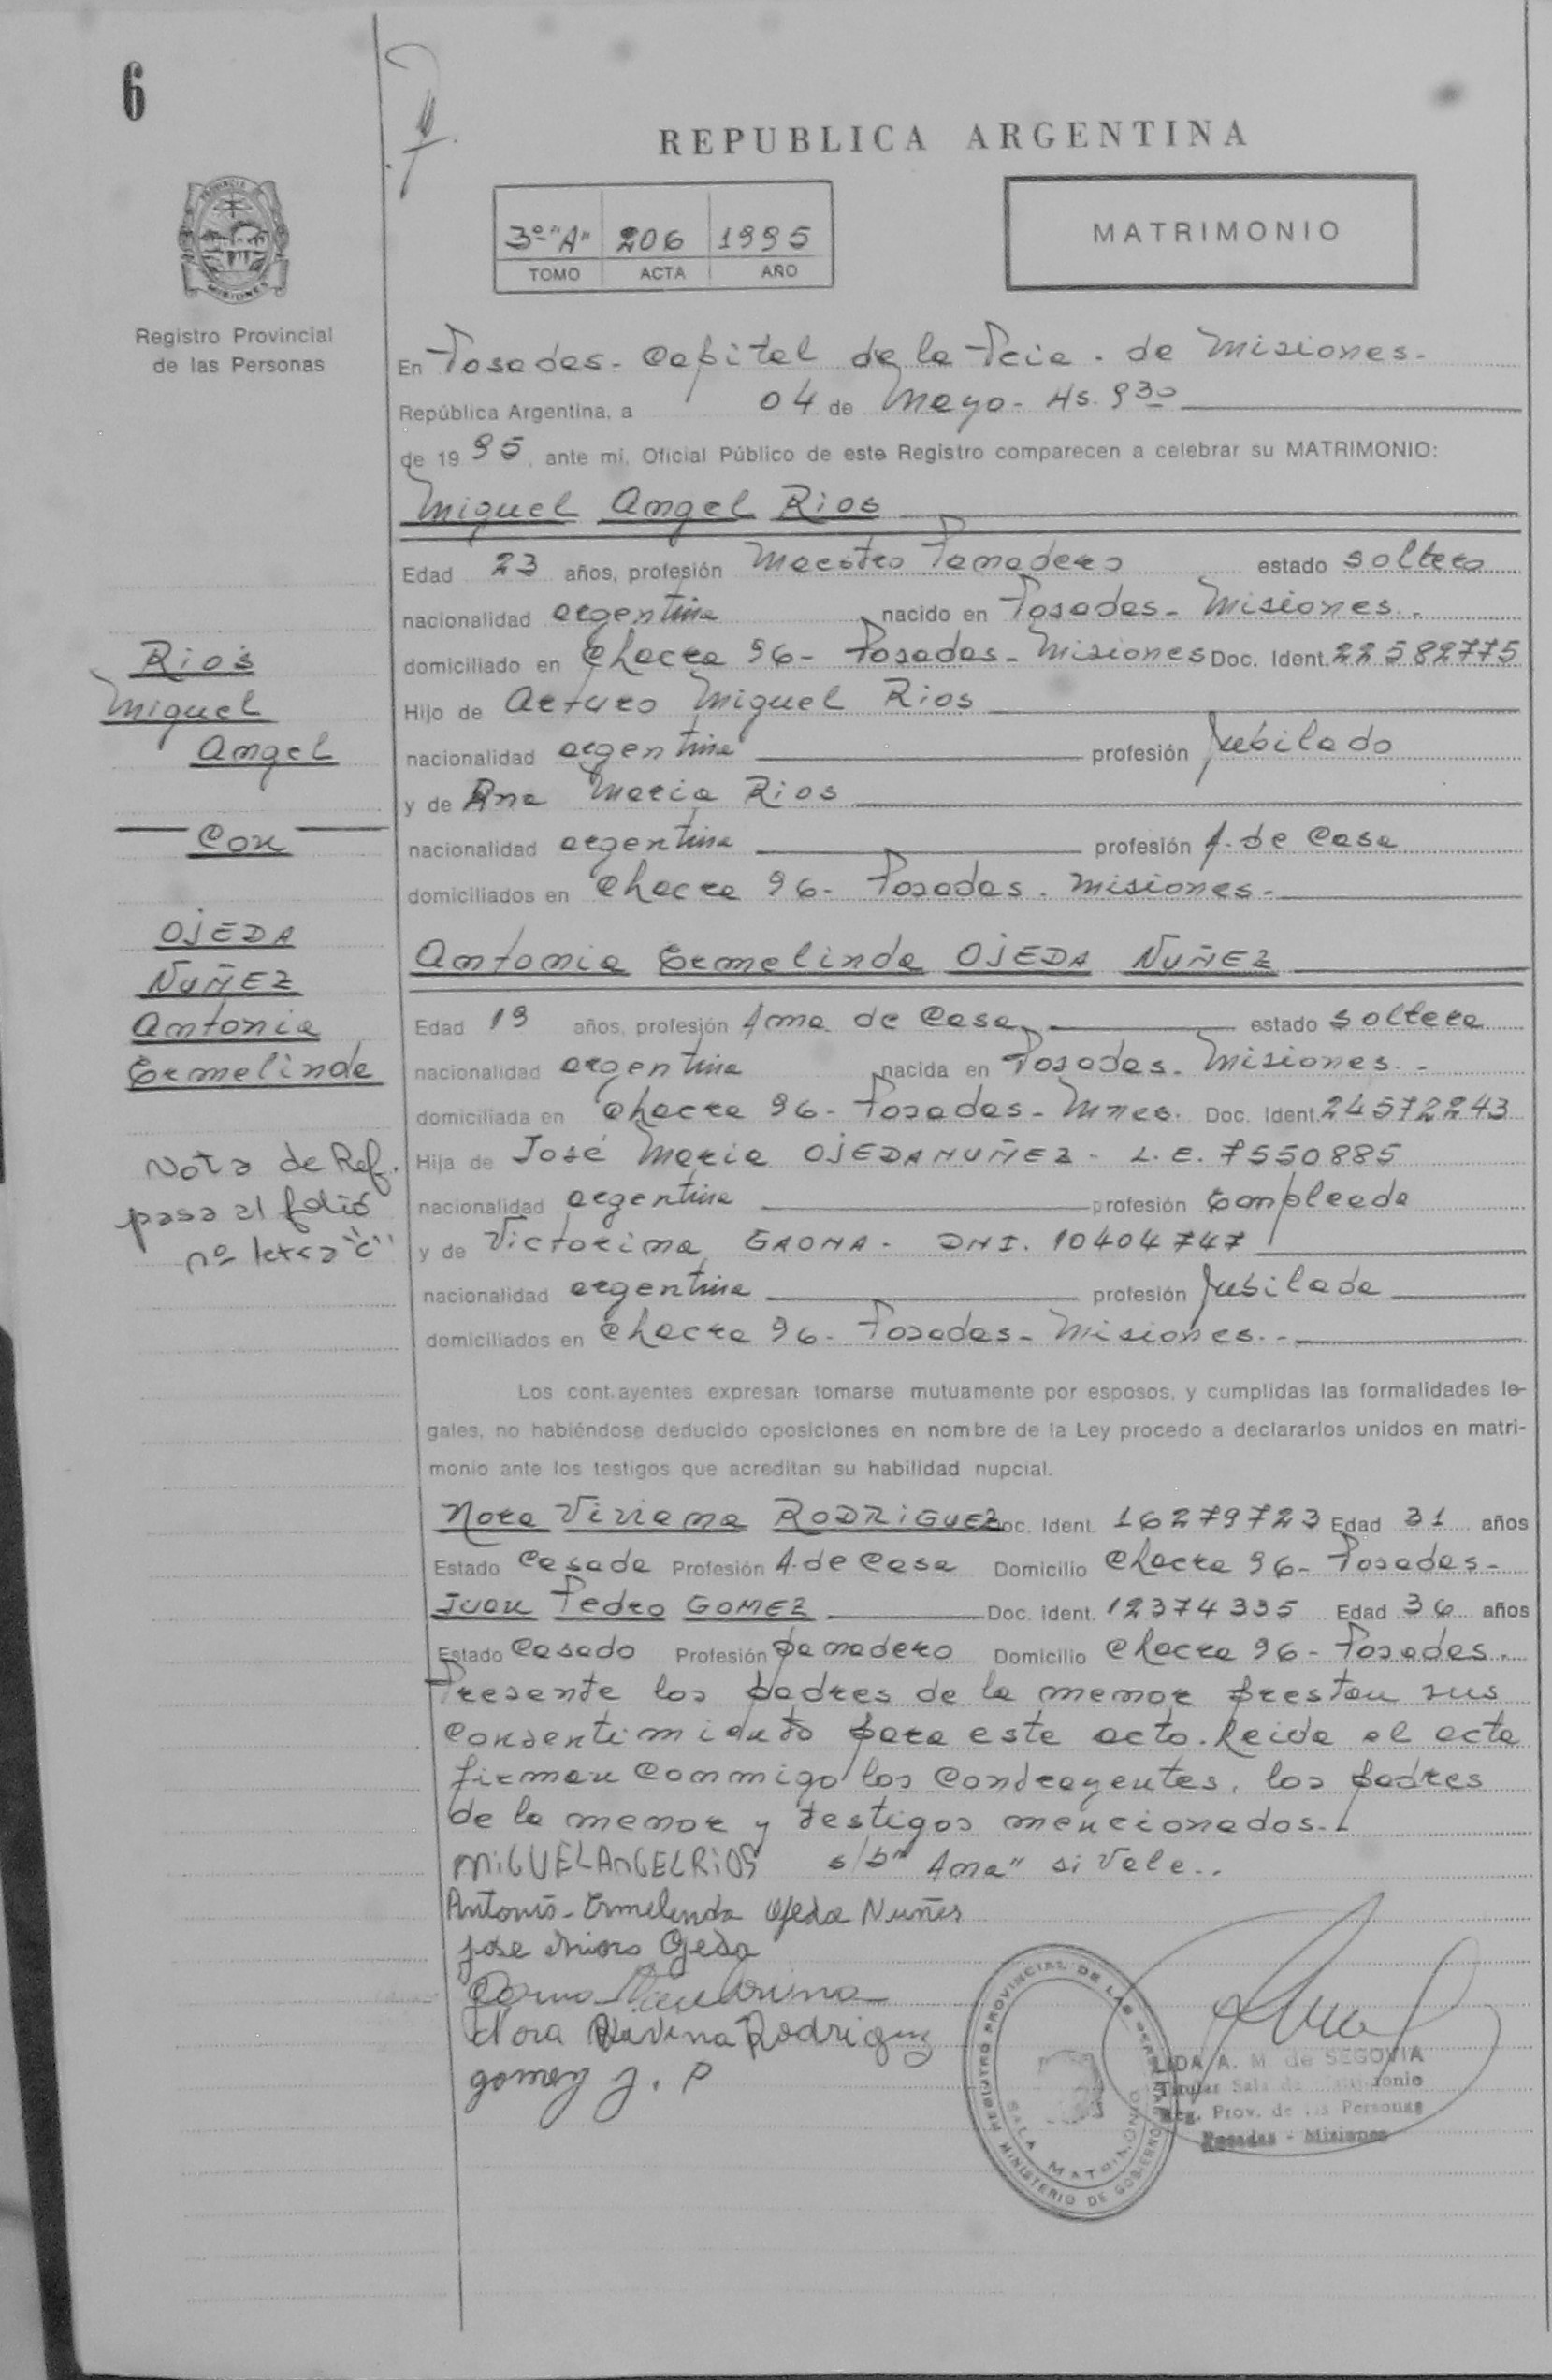 6
REPUBLICA ARGENTINA
3º "A" 206 1995
TOMO ACTA AÑO
MATRIMONIO
PROVINCIA DE
MISIONES
Registro Provincial
de las Personas
En Posadas - Capital de la Pcia. de Misiones.
República Argentina, a 04 de Mayo - Hs. 9 30
de 1995, ante mí, Oficial Público de este Registro comparecen a celebrar su MATRIMONIO:
Miguel Angel Rios
Edad 23 años, profesión Maestro Panadero estado soltero
nacionalidad argentina nacido en Posadas - Misiones.-
domiciliado en Chacra 96 - Posadas - Misiones Doc. Ident. 22582775
Hijo de Arturo Miguel Rios
nacionalidad argentina profesión Jubilado
y de Ana Maria Rios
nacionalidad argentina profesión A. de Casa
domiciliados en Chacra 96 - Posadas - Misiones -
Rios
Miguel
Angel
Con
OJEDA
NUÑEZ
Antonia
Ermelinda
Antonia Ermelinda OJEDA NUÑEZ
Edad 19 años, profesión Ama de Casa estado soltera
nacionalidad argentina nacida en Posadas - Misiones.-
domiciliada en Chacra 96 - Posadas - Mnes. Doc. Ident. 24572243
Nota de Ref.
pasa al folio
nº letra "C"
Hija de José Maria OJEDA NUÑEZ - L.E. 7550885
nacionalidad argentina profesión Empleado
y de Victorina GAONA - DNI. 10404747
nacionalidad argentina profesión Jubilada
domiciliados en Chacra 96 - Posadas - Misiones.-
Los cont.ayentes expresan tomarse mutuamente por esposos, y cumplidas las formalidades le-
gales, no habiéndose deducido oposiciones en nombre de la Ley procedo a declararlos unidos en matri-
monio ante los testigos que acreditan su habilidad nupcial.
Nora Viviana RODRIGUEZ Doc. Ident. 16279723 Edad 31 años
Estado Casada Profesión A. de Casa Domicilio Chacra 96 - Posadas -
Juan Pedro GOMEZ Doc. Ident. 12374335 Edad 36 años
Estado Casado Profesión panadero Domicilio Chacra 96 - Posadas.
Presente los padres de la menor prestan sus
consentimiento para este acto. Leida el acta
firman conmigo los contrayentes, los padres
de la menor y testigos mencionados.-
MIGUEL ANGEL RIOS s/b "Ama" si vale..
Antonia Ermelinda Ojeda Nuñes
Jose Ojeda
Gaona Victorina
Nora Rodriguez
gomez J. P
REGISTRO PROVINCIAL DE LAS PERSONAS
SALA MATRIMONIO
MINISTERIO DE GOBIERNO
LIDA A. M. de SEGOVIA
Titular Sala de Matrimonio
Reg. Prov. de las Personas
Posadas - Misiones